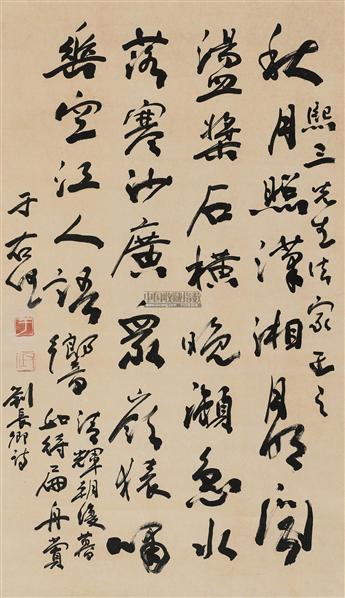 熙三先生法家正之
秋月照瀟湘月明聞
盪槳石橫晚瀨急水
落寒沙廣眾嶺猿嘯
重空江人語響
清輝朝復暮
如待扁舟賞
劉長卿詩
于右任
中国收藏指数